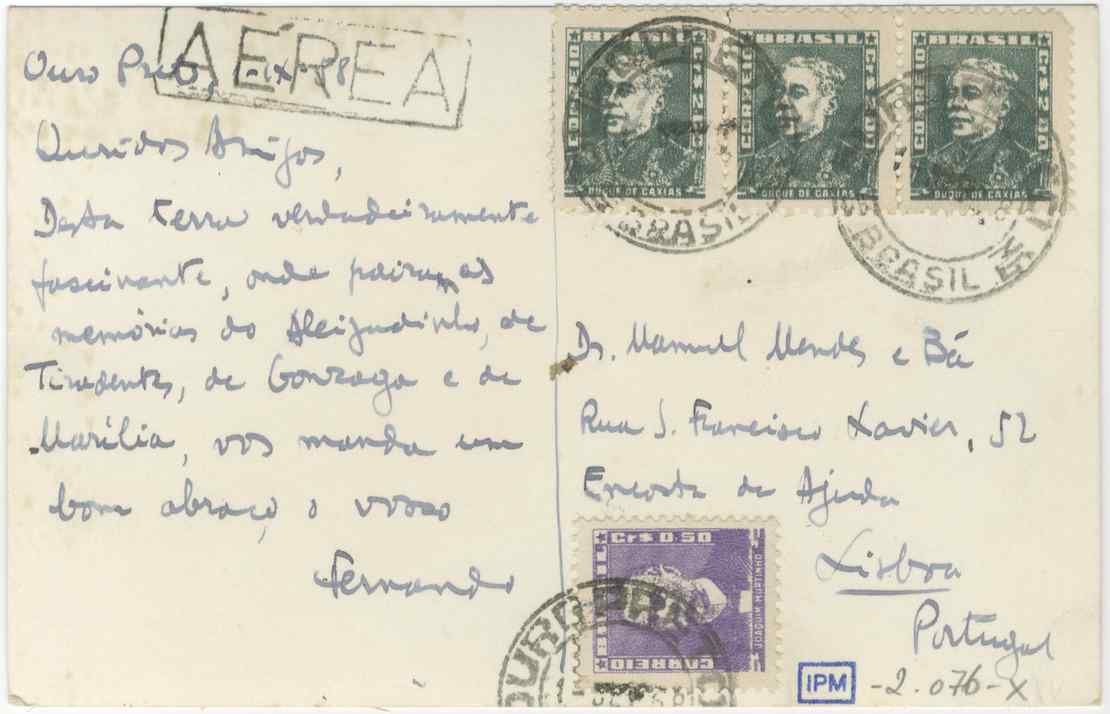 AÉREA
Ouro Preto, -IX-58
Queridos Amigos,
Desta terra verdadeiramente
fascinante, onde pairam as
memórias do Aleijadinho, de
Tiradentes, de Gonzaga e de
Marília, vos manda um
bom abraço o vosso
Fernando
BRASIL
CORREIO
CR$ 2,00
DUQUE DE CAXIAS
BRASIL
CORREIO
CR$ 2,00
DUQUE DE CAXIAS
BRASIL
CORREIO
CR$ 2,00
DUQUE DE CAXIAS
BRASIL
BRASIL
Dr. Manuel Mendes e Bá
Rua S. Francisco Xavier, 52
Encosta da Ajuda
Lisboa
Portugal
Cr$ 0,50
BRASIL
CORREIO
JOAQUIM MURTINHO
OURO PRETO
IPM
-2.076-X